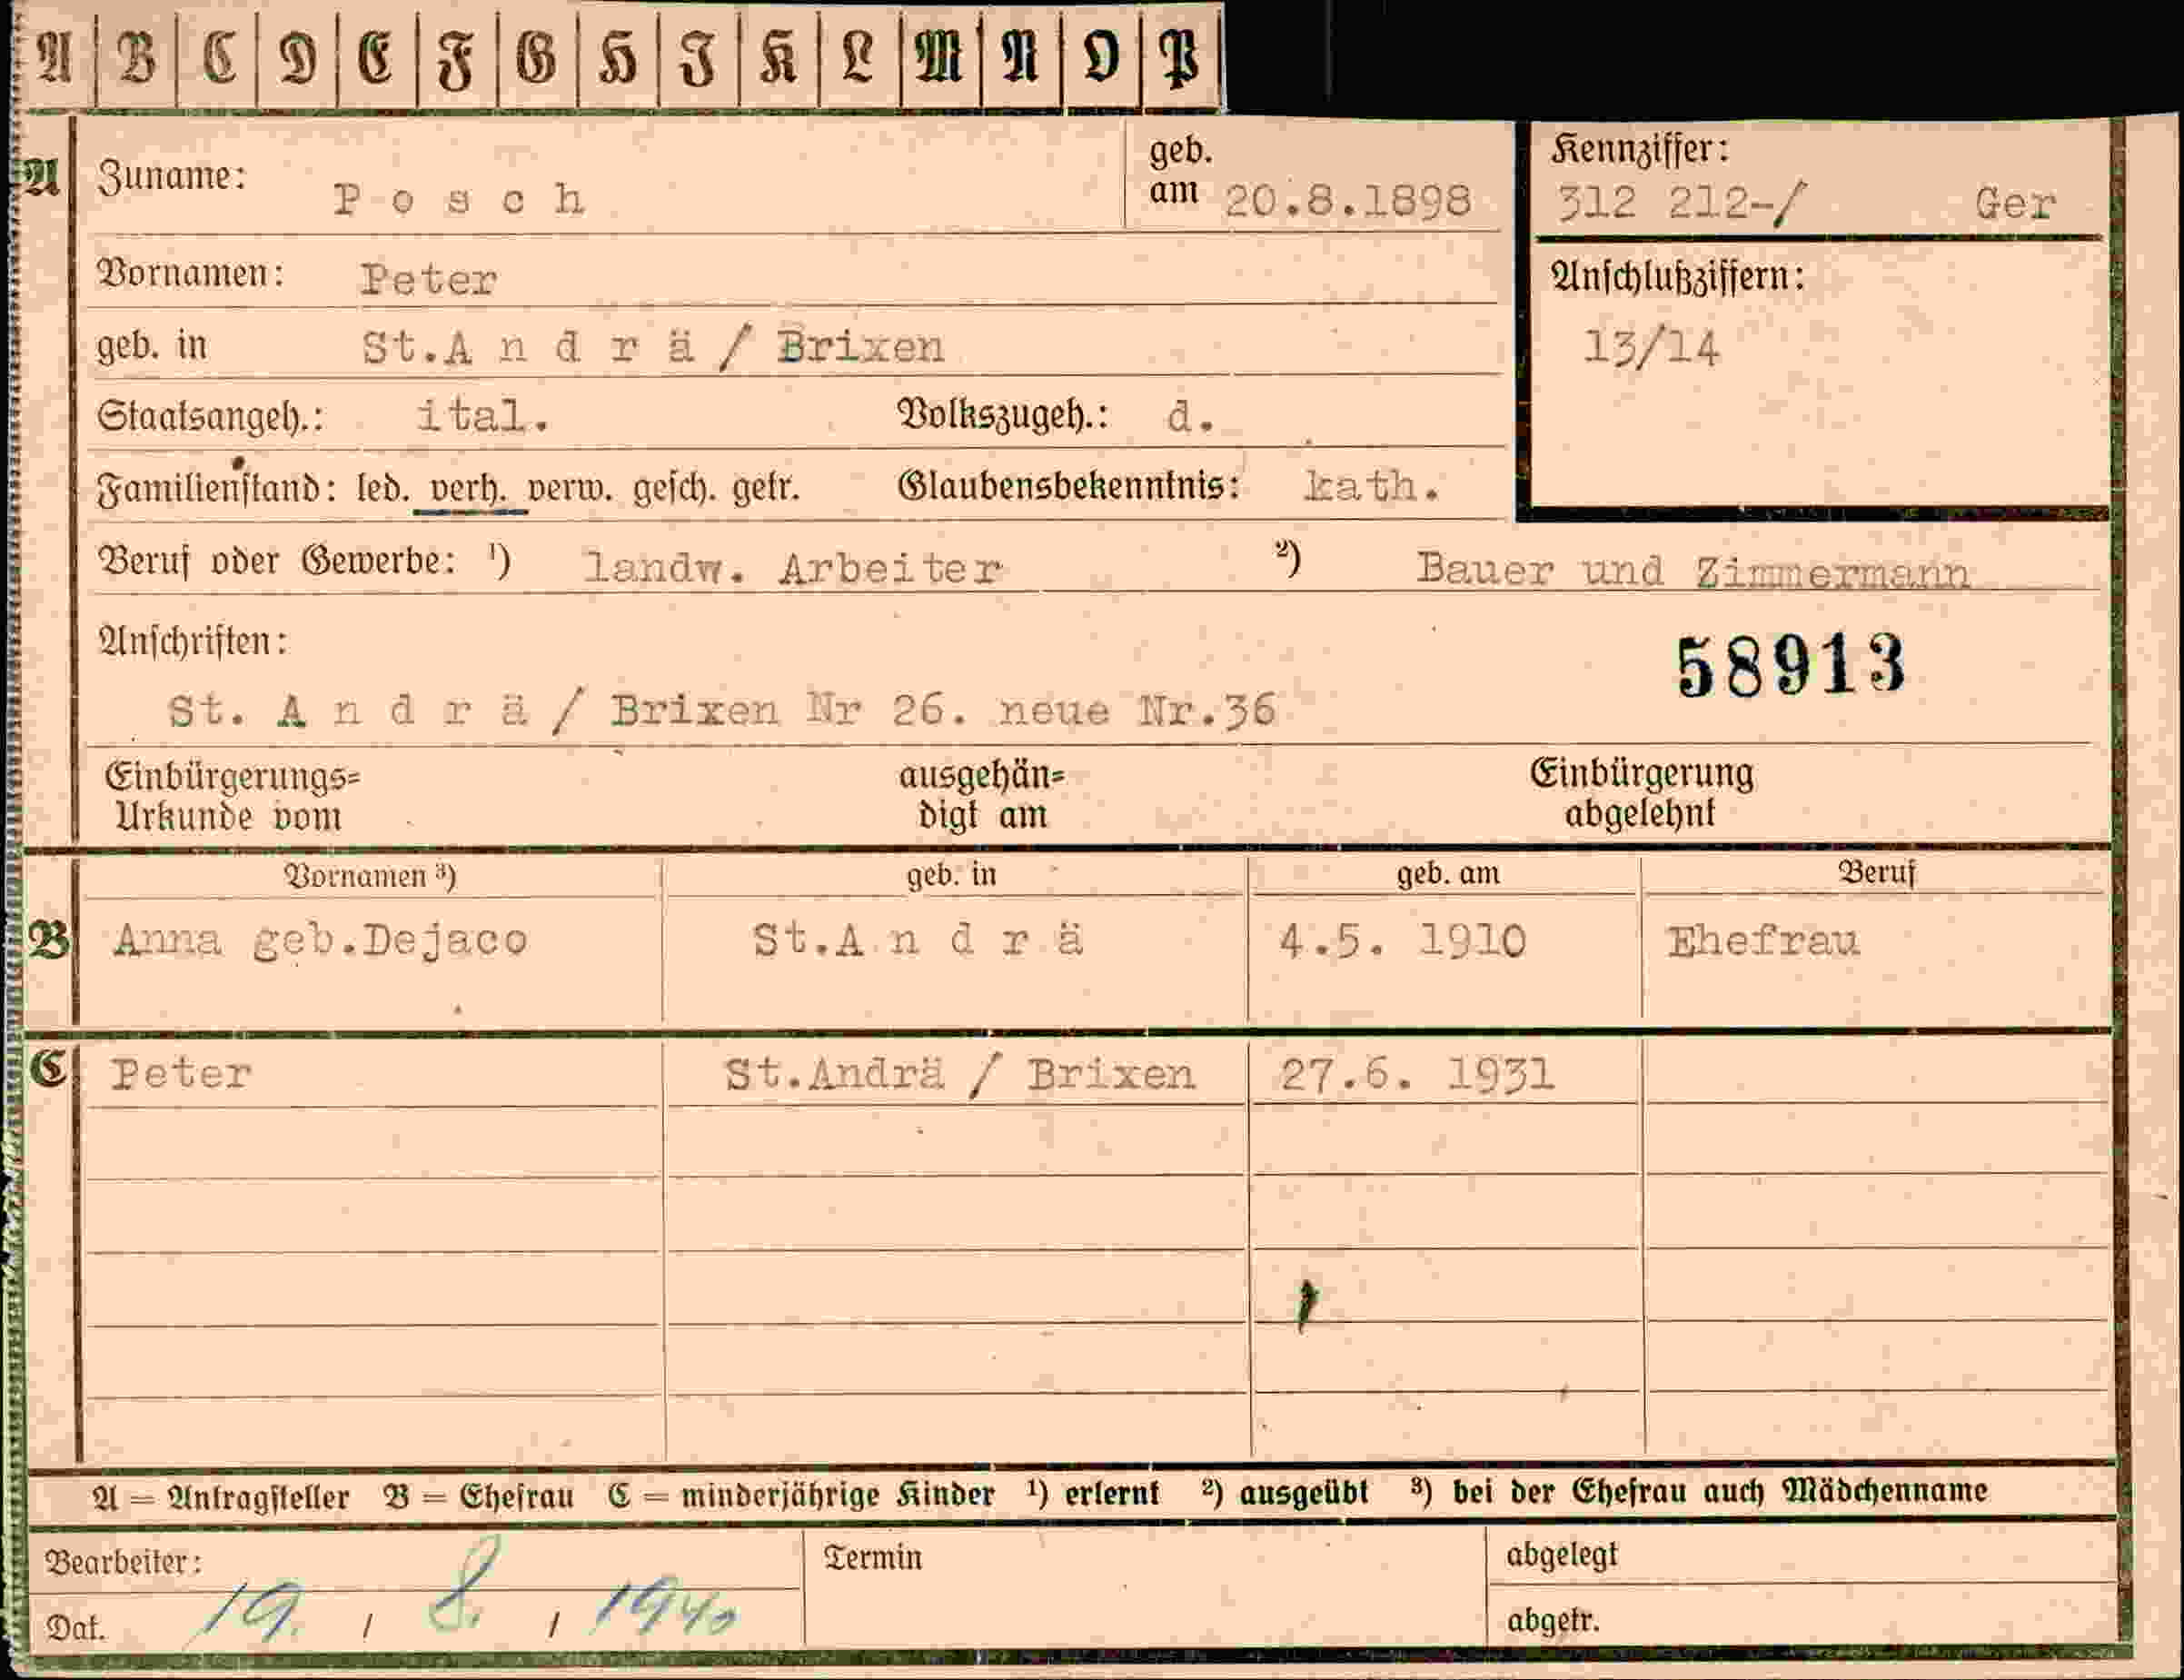 A B C D E F G H I K L M N O P
A Zuname: Posch geb. am 20.8.1898
Kennziffer: 312 212-/ Ger
Vornamen: Peter
Anschlußziffern: 13/14
geb. in St.Andrä / Brixen
Staatsangeh.: ital. Volkszugeh.: d.
Familienstand: led. verh. verw. gesch. getr. Glaubensbekenntnis: kath.
Beruf oder Gewerbe: ¹) landw. Arbeiter ²) Bauer und Zimmermann
Anschriften:
58913
St. Andrä / Brixen Nr 26. neue Nr.36
Einbürgerungs=
Urkunde vom
ausgehän=
digt am
Einbürgerung
abgelehnt
Vornamen ³) geb. in geb. am Beruf
B Anna geb.Dejaco St.Andrä 4.5. 1910 Ehefrau
C Peter St.Andrä / Brixen 27.6. 1931
A = Antragsteller B = Ehefrau C = minderjährige Kinder ¹) erlernt ²) ausgeübt ³) bei der Ehefrau auch Mädchenname
Bearbeiter: Termin abgelegt
Dat. 19. / 8. / 1940 abgetr.